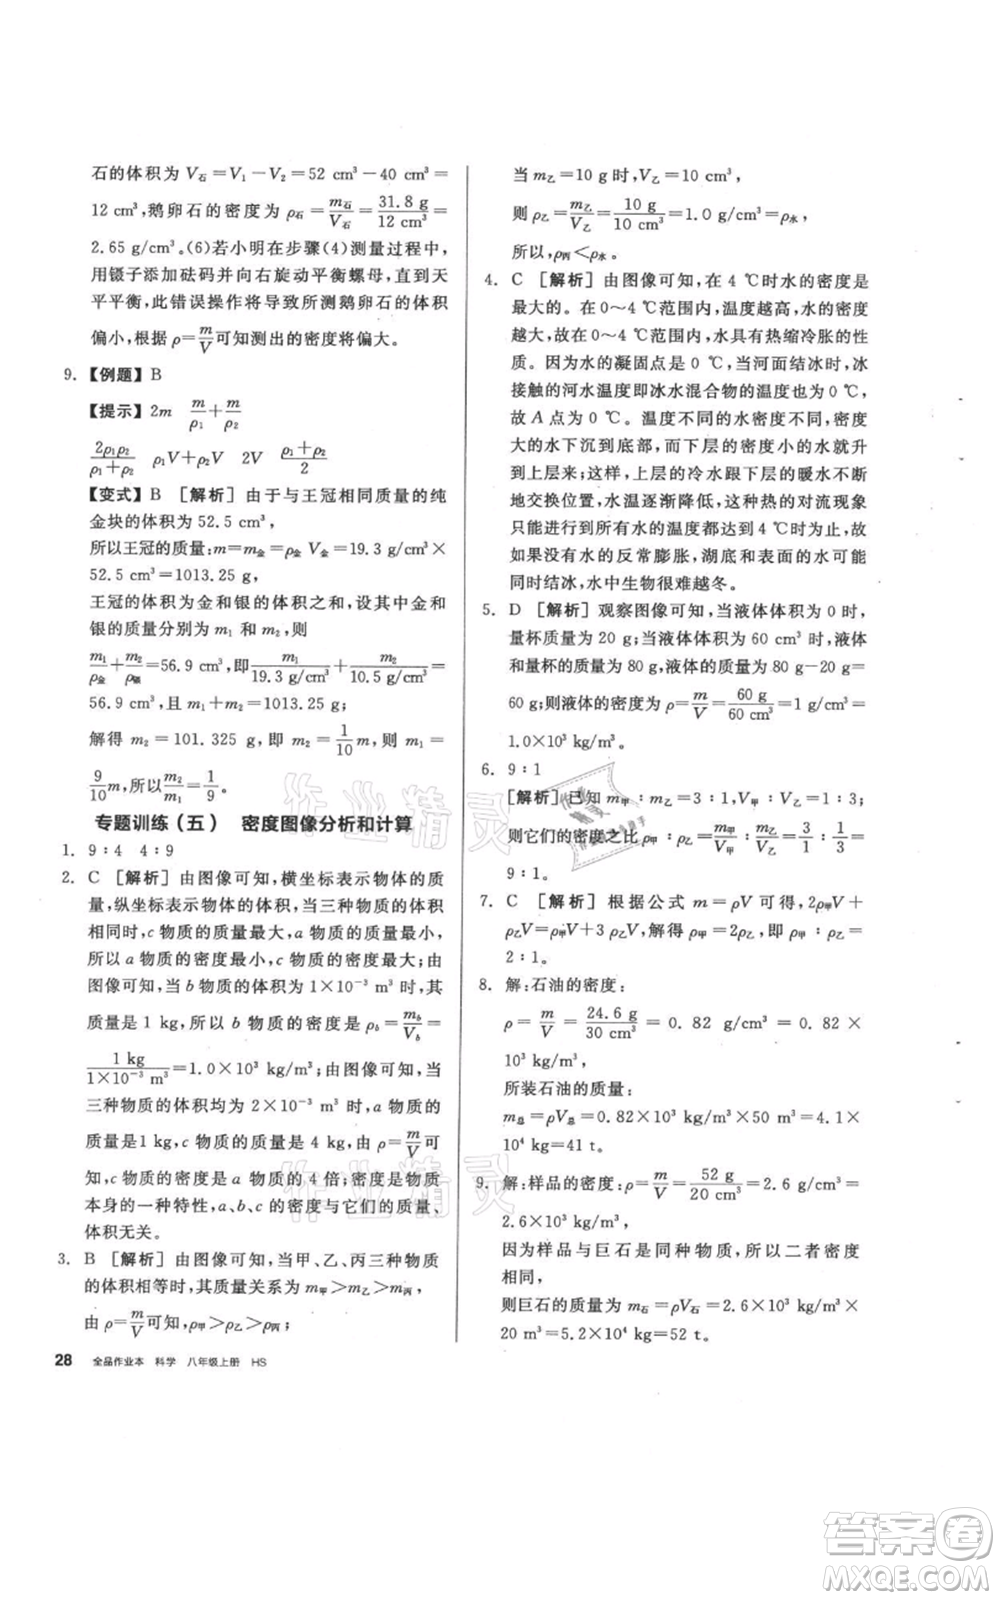 石的体积为 V石=V₁-V₂=52 cm³-40 cm³=
12 cm³,鹅卵石的密度为 ρ石=m石/V石=31.8 g/12 cm³=
2.65 g/cm³。(6)若小明在步骤(4)测量过程中,
用镊子添加砝码并向右旋动平衡螺母,直到天
平平衡,此错误操作将导致所测鹅卵石的体积
偏小,根据 ρ=m/V可知测出的密度将偏大。
9. 【例题】B
【提示】2m m/ρ₁+m/ρ₂
2ρ₁ρ₂/(ρ₁+ρ₂) ρ₁V+ρ₂V 2V (ρ₁+ρ₂)/2
【变式】B [解析] 由于与王冠相同质量的纯
金块的体积为 52.5 cm³,
所以王冠的质量:m=m金=ρ金 V金=19.3 g/cm³×
52.5 cm³=1013.25 g,
王冠的体积为金和银的体积之和,设其中金和
银的质量分别为 m₁ 和 m₂,则
m₁/ρ金+m₂/ρ银=56.9 cm³,即m₁/19.3 g/cm³+m₂/10.5 g/cm³=
56.9 cm³,且 m₁+m₂=1013.25 g,
解得 m₂=101.325 g,即 m₂=1/10m,则 m₁=
9/10m,所以m₂/m₁=1/9。
专题训练(五) 密度图像分析和计算
1. 9:4 4:9
2. C [解析] 由图像可知,横坐标表示物体的质
量,纵坐标表示物体的体积,当三种物质的体积
相同时,c 物质的质量最大,a 物质的质量最小,
所以 a 物质的密度最小,c 物质的密度最大;由
图像可知,当 b 物质的体积为 1×10⁻³ m³ 时,其
质量为 1 kg,所以 b 物质的密度是 ρb=mb/Vb=
1 kg/1×10⁻³ m³=1.0×10³ kg/m³;由图像可知,当
三种物质的体积均为 2×10⁻³ m³时,a 物质的
质量是1 kg,c 物质的质量是 4 kg,由 ρ=m/V可
知,c 物质的密度是 a 物质的 4 倍;密度是物质
本身的一种特性,与物质的种类有关,与质量、
体积无关。
3. B [解析] 由图像可知,当甲、乙、丙三种物质
的体积相等时,其质量关系为 m甲>m乙>m丙,
由 ρ=m/V可知,ρ甲>ρ乙>ρ丙;
28 全品作业本 科学 八年级上册 HS
当 m乙=10 g 时,V乙=10 cm³,
则 ρ乙=m乙/V乙=10 g/10 cm³=1.0 g/cm³=ρ水,
所以,ρ丙<ρ水。
4. C [解析] 由图像可知,在 4 ℃时水的密度是
最大的。在 0~4 ℃范围内,温度越高,水的密度
越大,故在 0~4 ℃范围内,水具有热缩冷胀的
性质。因为水的凝固点是 0 ℃,当河面结冰时,冰
接触的河水温度即冰水混合物的温度为 0 ℃,
故 A 点为 0 ℃。温度不同的水密度不同,密度
大的水下沉到底部,而下层的密度小的水就升
到上层来;这样,上层的冷水跟下层的暖水不断
地交换位置,水温逐渐降低,这种热的对流现象
只能进行到所有水的温度都达到 4 ℃时为止,故
如果没有水的反常膨胀,湖底和表面的水可能
同时结冰,水中生物很难越冬。
5. D [解析] 观察图像可知,当液体体积为 0 时,
量杯质量为 20 g;当液体体积为 60 cm³ 时,液体
和量杯的质量为 80 g,液体的质量为 80 g-20 g=
60 g;则液体的密度为 ρ=m/V=60 g/60 cm³=1 g/cm³=
1.0×10³ kg/m³。
6. 9:1
[解析] 已知 m甲:m乙=3:1,V甲:V乙=1:3,
则它们的密度之比 ρ甲:ρ乙=m甲/V甲:m乙/V乙=3/1:1/3=
9:1。
7. C [解析] 根据公式 m=ρV 可知,2ρ甲V+
ρ乙V=ρ甲V+3 ρ乙V,解得 ρ甲=2ρ乙,即 ρ甲:ρ乙=
2:1。
8. 解:石油的密度:
ρ=m/V=24.6 g/30 cm³=0.82 g/cm³=0.82×
10³ kg/m³,
所装石油的质量:
m总=ρV总=0.82×10³kg/m³×50 m³=4.1×
10⁴ kg=41 t。
9. 解:样品的密度:ρ=m/V=52 g/20 cm³=2.6 g/cm³=
2.6×10³kg/m³,
因为样品与巨石是同种物质,所以二者密度
相同,
则巨石的质量为 m石=ρV石=2.6×10³kg/m³×
20 m³=5.2×10⁴kg=52 t。
作业精灵
作业精灵
答案圈
MXQE.COM